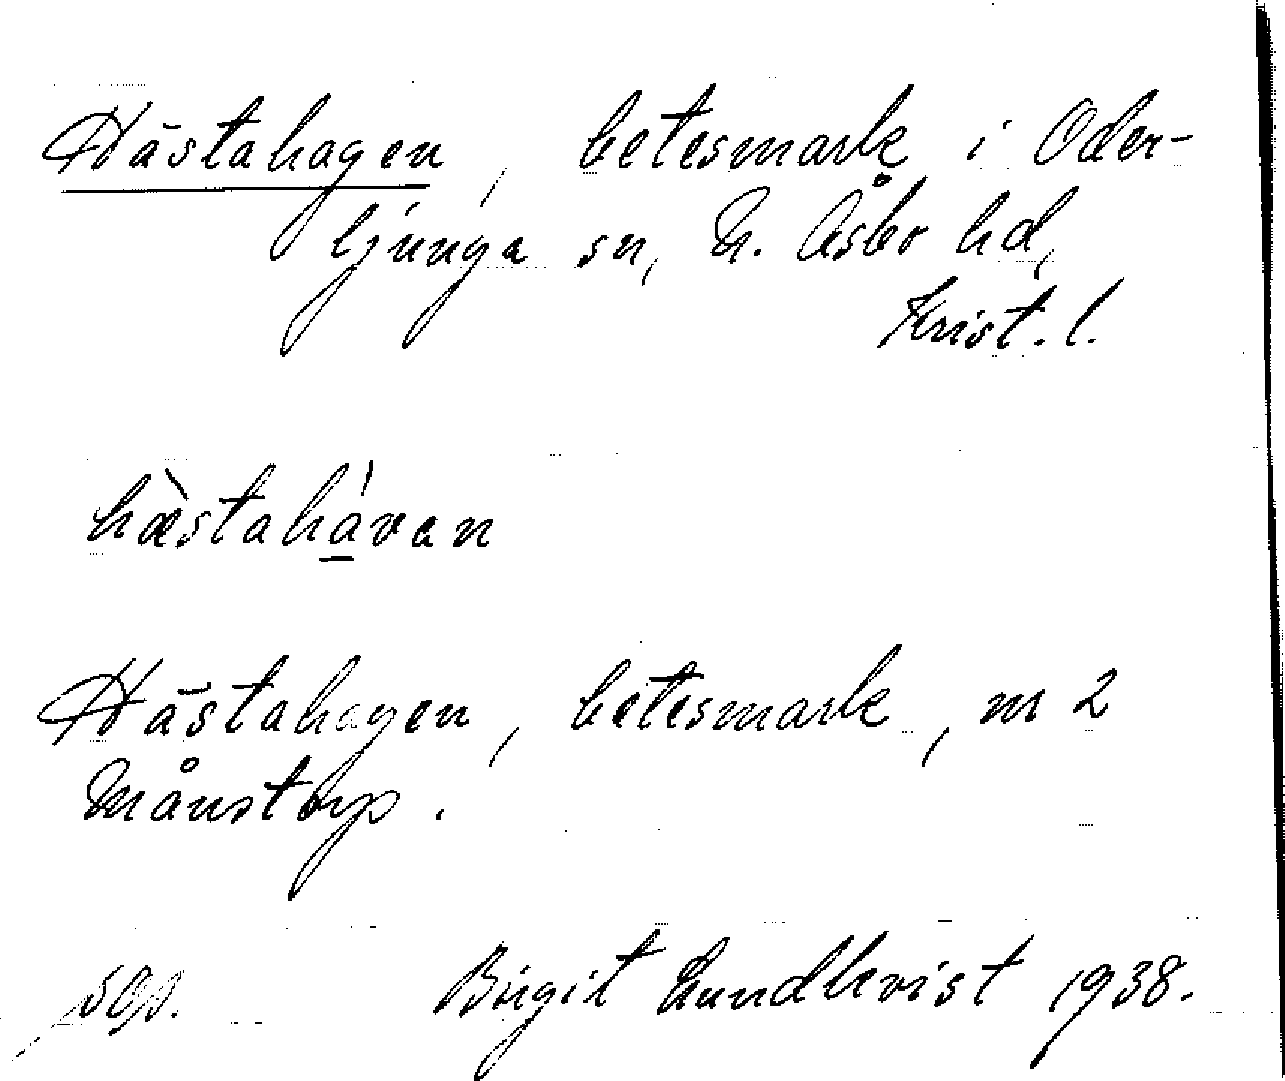 Hästahagen, betesmark i Oder-
ljunga sn, N. Åsbo hd,
Krist. l.
hæ̀stahávan
Hästahagen, betesmark, nr 2
Månstorp.
Birgit Lundkvist 1938.